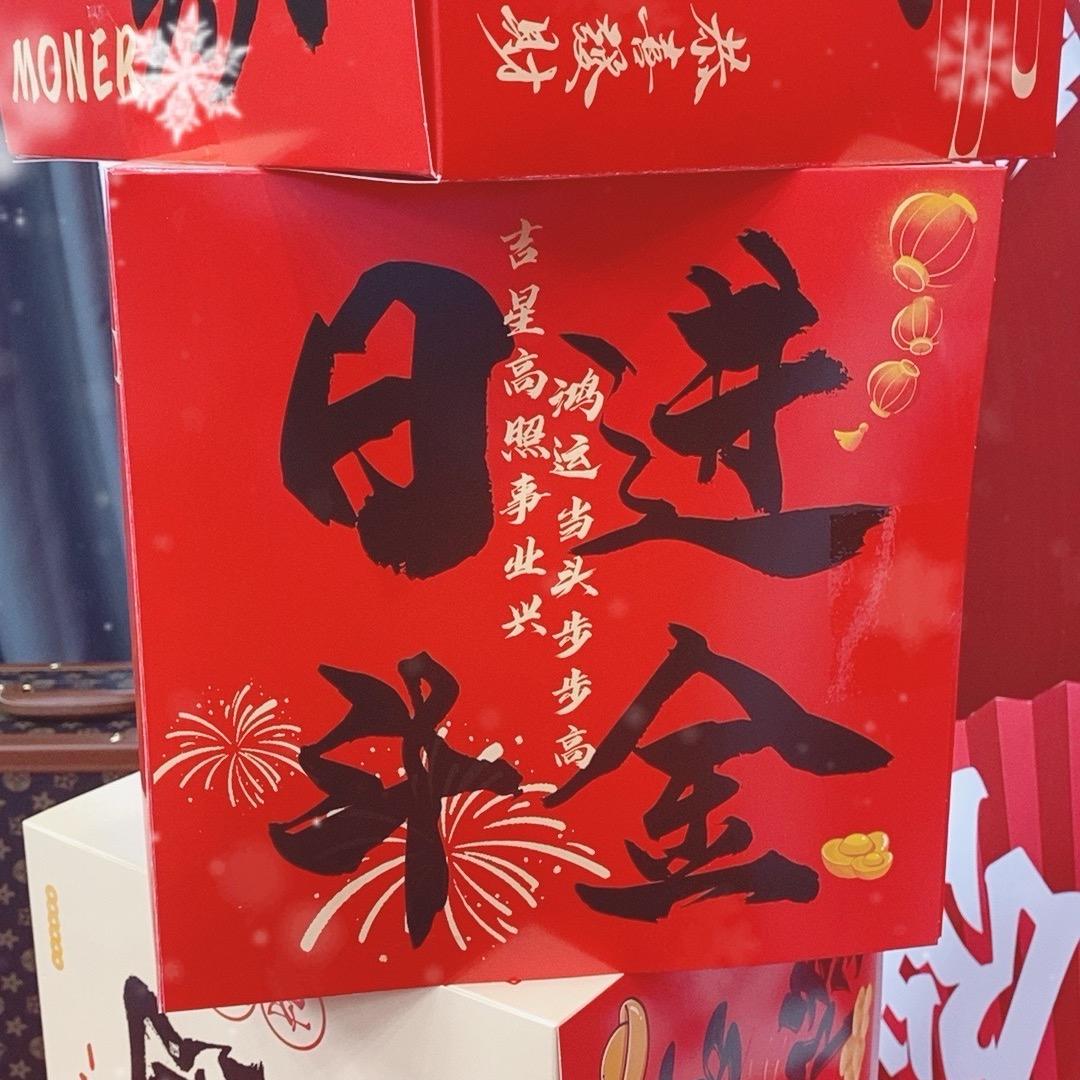 MONER
恭喜發財
日进
斗金
鸿运当头步步高
吉星高照事业兴